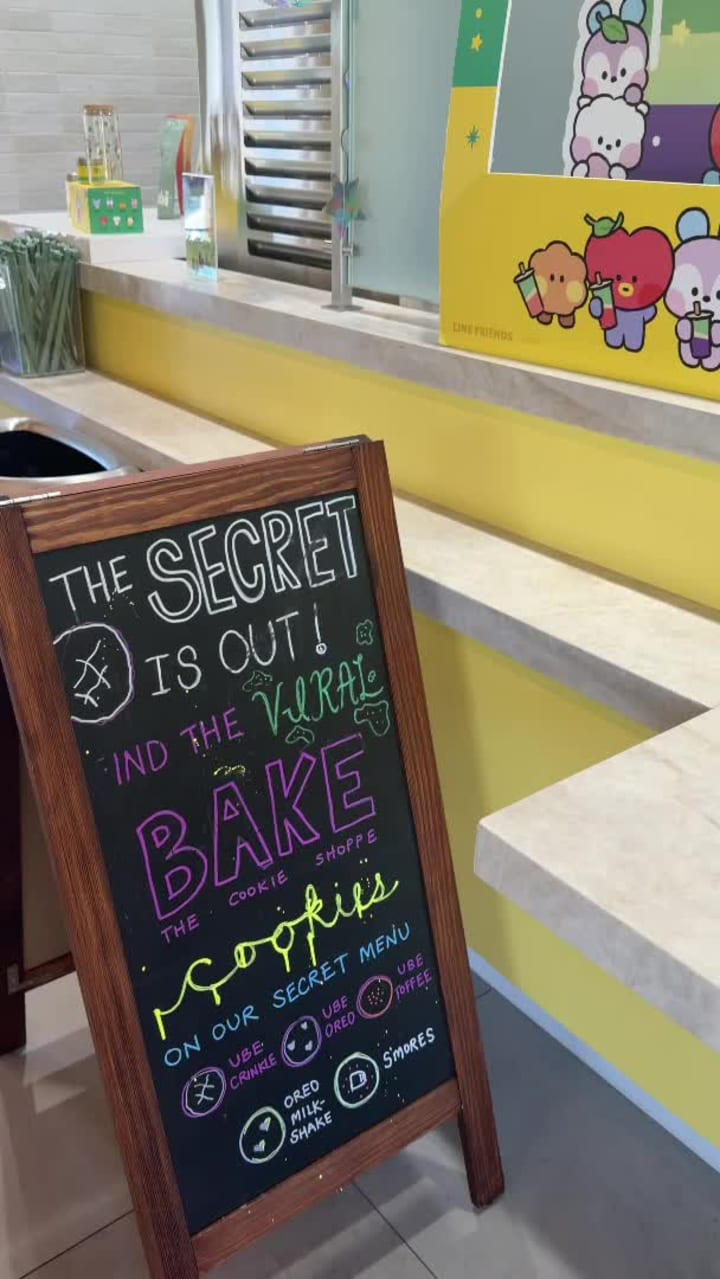 LINE FRIENDS
THE SECRET
IS OUT!
IND THE VIRAL
BAKE
THE COOKIE SHOPPE
cookies
ON OUR SECRET MENU
UBE
CRINKLE
UBE
OREO
UBE
TOFFEE
OREO
MILK-
SHAKE
S'MORES